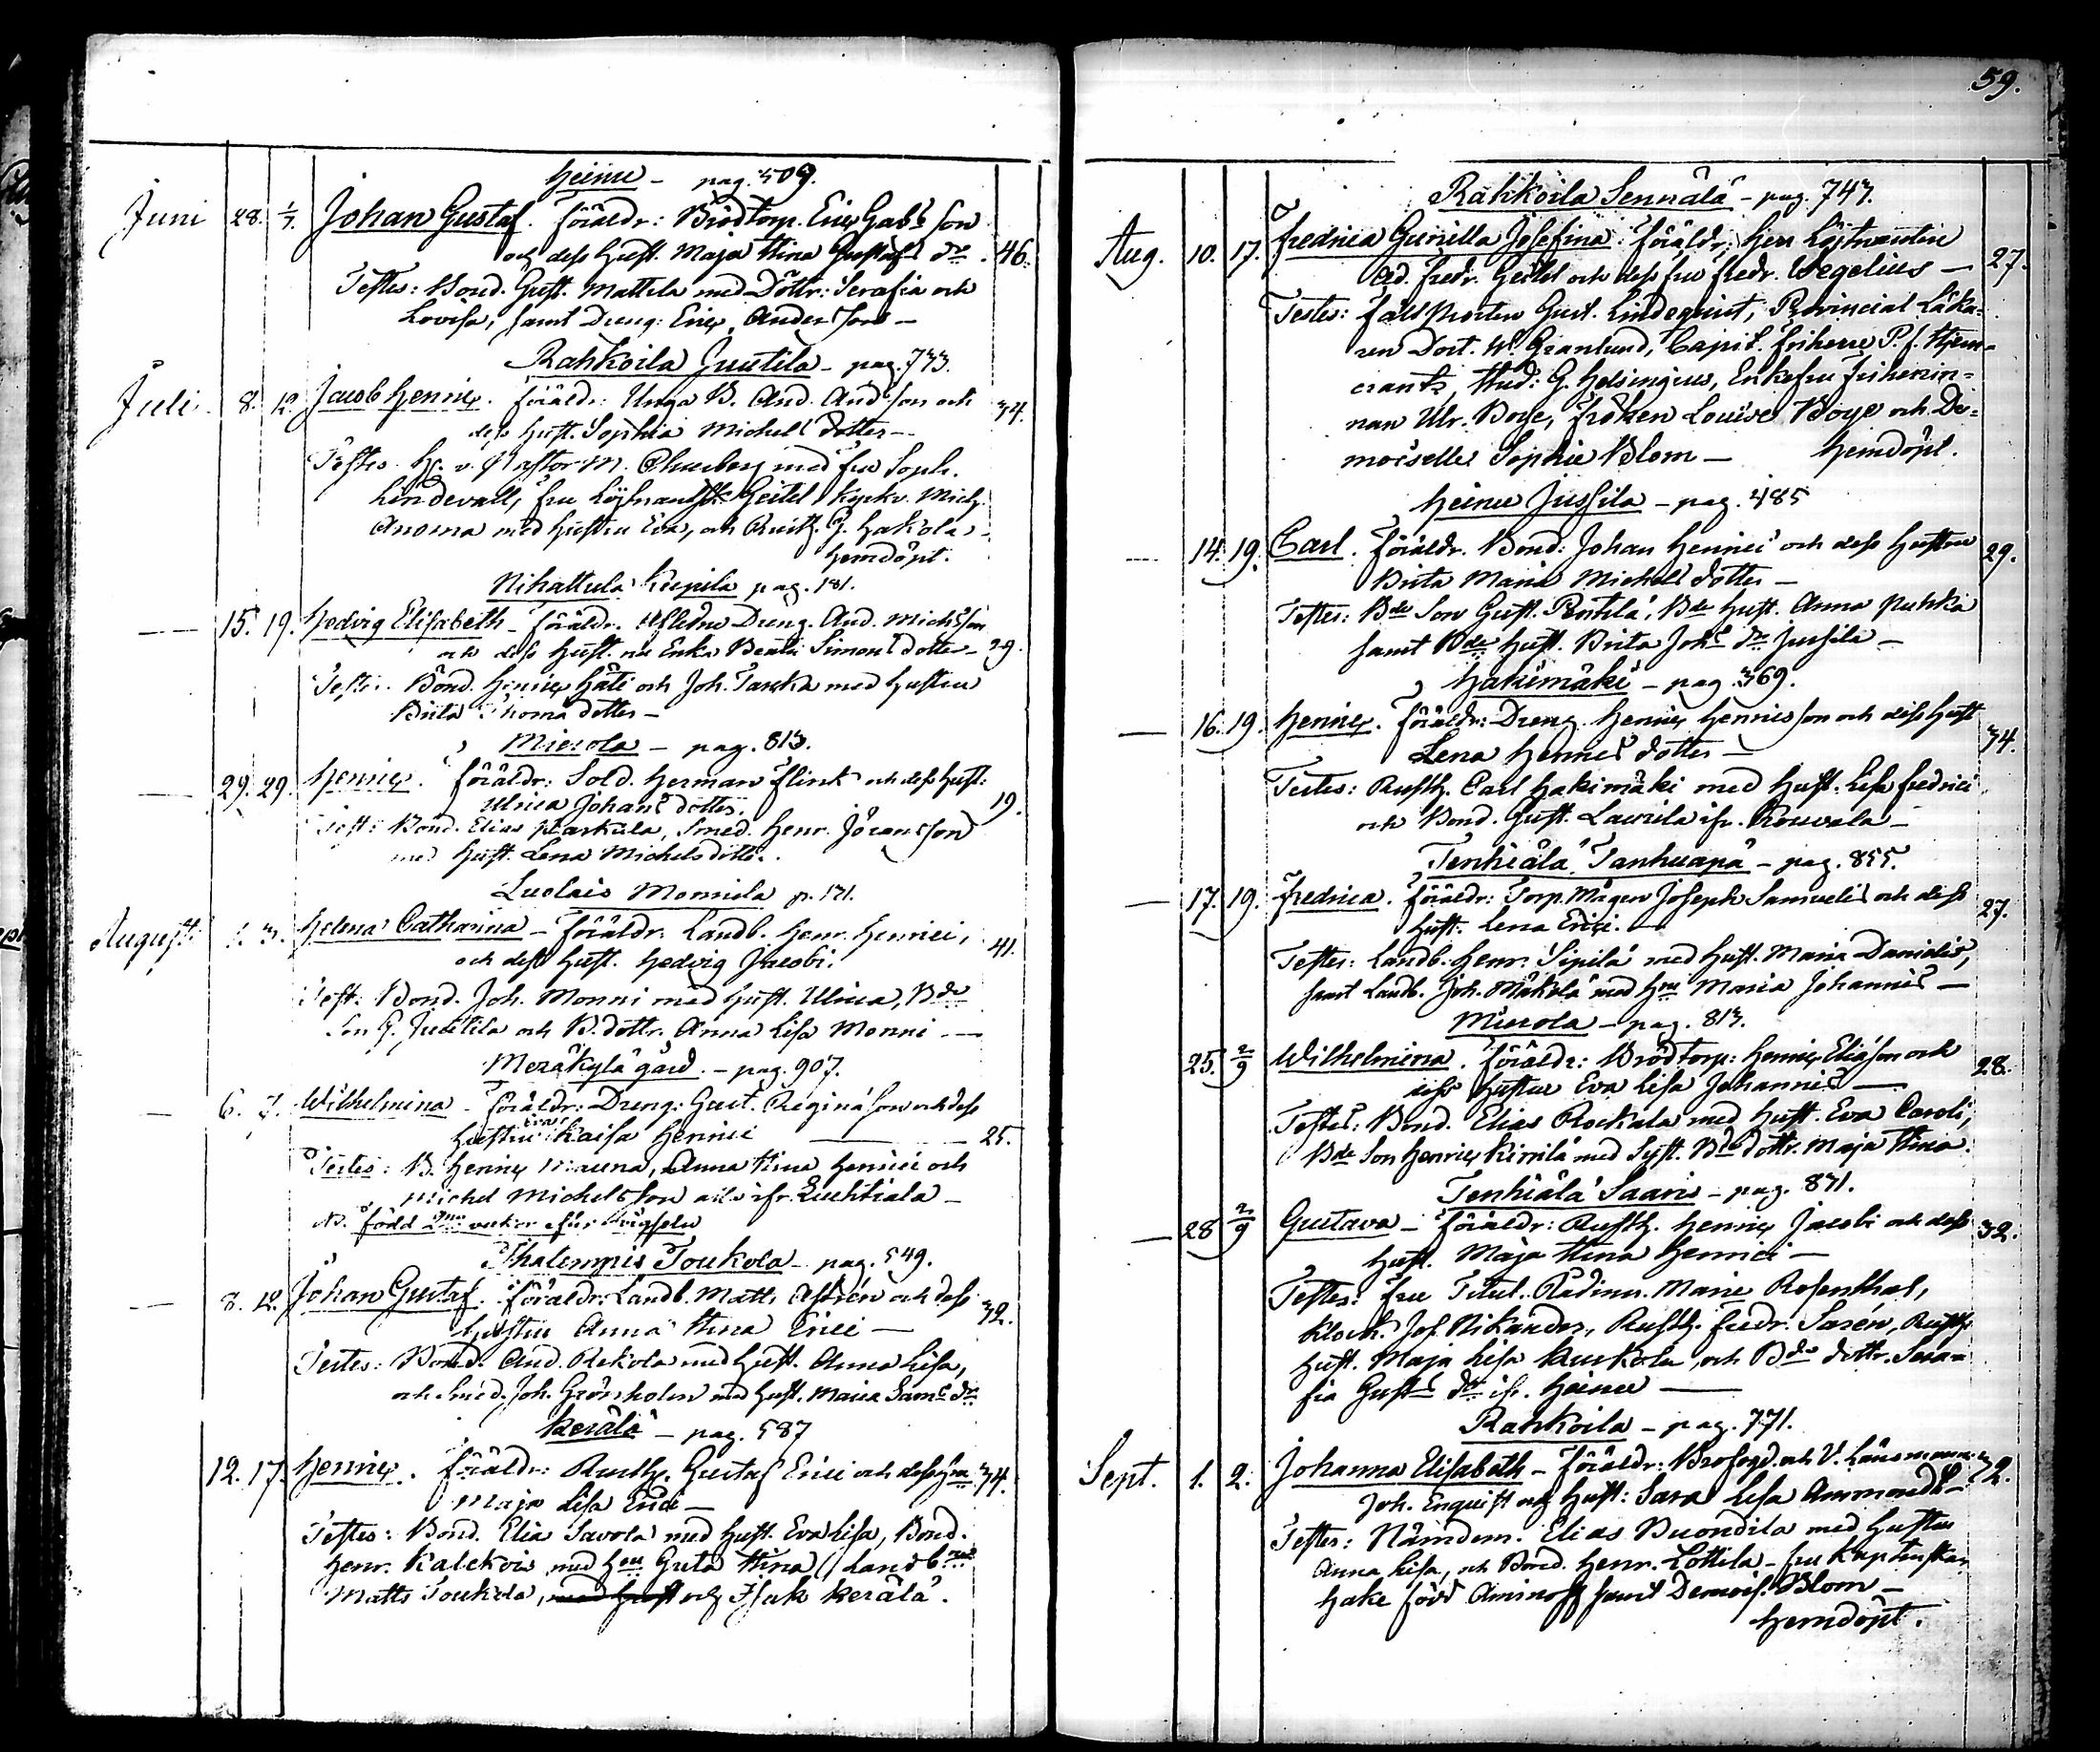 Heinu – pag. 509.
Juni 28. 1/7. Johan Gustaf. föräldr: Brödtorp. Eric Gabs son
och dess hust. Maja Stina Gustafs dr. 46.
Testes: Bond. Gust. Mattila med Döttr: Serafia och
Lovisa, samt Dreng: Eric Anders son –
Rahkoila Juutila – pag. 733.
Juli 8. 12. Jacob Henric. föräldr: Unga B. And. And. son och 34.
dess hust. Sophia Michels dotter –
Testes H. v. Pastor M. med fru Soph.
Lindevall, fru Löjtnantsk. Geitel Kyrkv. Mich.
Anoma med hustru Eva, och Rusth. G. Hakola –
hemdöpt.
Nihattula Kepila pag. 181.
— 15. 19. Hedvig Elisabeth – föräldr. Aflidne Dreng. And. Michs son
och dess hust. nu Enka Beata Simons dotter – 29.
Testes. Bond. Henric Häti och Joh. Tanska med hustru
Brita Thomæ dotter –
Mierola – pag. 813.
— 29. 29. Henric. föräldr: Sold. Herman Flink och dess hust:
Ulrica Johans dotter. 19.
Test: Bond. Elias Raskala, Smed. Henr. Jöransson
med hust. Lena Michelsdotter.
Luolais Monnila p. 171.
August. 1. 3. Helena Catharina – föräldr. Landb. Henr. Henrici, 41.
och dess hust. Hedvig Jacobi.
Test: Bond. Joh. Monni med hust. Ulrica, Bde
Son G. Juutila och B. dottr. Anna Lisa Monni —
Meräkylä gård. – pag. 907.
— 6. 7. Wilhelmina – föräldr: Dreng: Gust. Reginæ son och dess
hustru Eva Kaisa Henrici — 25.
Testes: B. Henric Mauna, Anna Stina Henrici och
Michel Michelsson alla ifr. Luhtiala –
NB. född 2ne veckor efter vigseln
Thalempis Toukola – pag. 549.
— 8. 12. Johan Gustaf. föräldr: Landb. Matts Astrén och dess 32.
hustru Anna Stina Erici —
Testes: Bond. And. Rekola med hust. Anna Lisa,
och Smed. Joh. Grönholm med hust. Maria Sams dr.
Kerälä – pag. 587
12. 17. Henric. föräldr: Rusth. Gustaf Erici och dess hru 34.
Maja Lisa Erici –
Testes: Bond. Elia Savola med hust. Eva Lisa, Bond.
Henr. Kalekoin med hru Greta Stina, Landbne
Matts Toukola, med hust och Isak Kerälä.
59.
Rahkoila Sennälä – pag. 747.
Aug. 10. 17. Fredrica Gunilla Josefina. föräldr: Herr Löjtnanten
Ad. Fredr. Geitel och dess fru Fredr. Wegelius — 27.
Testes: Prosten Gust. Lindequist, Provincial Läka=
ren Doct. W. Granlund, Capit. friherre P. f. Stjern-
crantz, Stud: G. Helsingius, Enkefru friherrin=
nan Ulr. Boye, Fröken Louise Boye och De=
moiselle Sophie Blom — hemdöpt.
Heinu Jussila – pag. 485
— 14. 19. Carl. föräldr. Bond: Johan Henrici och dess hustru 29.
Brita Maria Michels dotter —
Testes: Bde Son Gust. Penttilä, Bde hust. Anna Puhka
samt Bde hust. Brita Johs dr Jussila —
Hakimäki – pag. 369.
— 16. 19. Henric. föräldr: Dreng. Henric Henrics son och dess hust 34.
Lena Henrics dotter —
Testes: Rusth. Carl Hakimäki med hust. Lisa Fredrici
och Bond. Gust. Laurila ifr. Rouvala –
Tenhiälä Tanhuapä – pag. 855.
— 17. 19. Fredrica. föräldr: Torp. Mågen Joseph Samuelis och dess 27.
hust. Lena Erici. —
Testes: Landb. Henr. Sipilä med hust. Maria Danielis,
samt Landb. Joh. Mäkelä med hru Maria Johannis —
Mierola – pag. 813.
25. 2/9 Wilhelmina. föräldr: Brödtorp: Henric Eliæ son och 28.
dess hustru Eva Lisa Johannis —
Testes: Bond. Elias Rockala med hust. Eva Caroli,
Bde Son Henric Kirrilä med Syst. Bde dottr. Maja Stina.
Tenhiälä Saaris – pag. 871.
— 28 2/9 Gustava – föräldr: Rusth. Henric Jacobi och dess 32.
hust. Maja Stina Henrici —
Testes: fru Titul. Rådinn. Marie Rosenthal,
Klock. Jos. Nikander, Rusth. Fredr. Sarén, Rusth.
hust. Maja Lisa Kurkela, och Bde dottr. Sera=
fia Gusts dr ifr. Heinu —
Rahkoila – pag. 771.
Sept. 1. 2. Johanna Elisabeth – föräldr: Brofogd. och V. Länsmann 32.
Joh. Enquist och hust: Sara Lisa Ammondt –
Testes: Nämdem. Elias Buondila med hustru
Anna Lisa, och Bond. Henr. Lottila – fru Kaptenskan
Hake född Aminoff samt Demois. Blom –
hemdöpt.